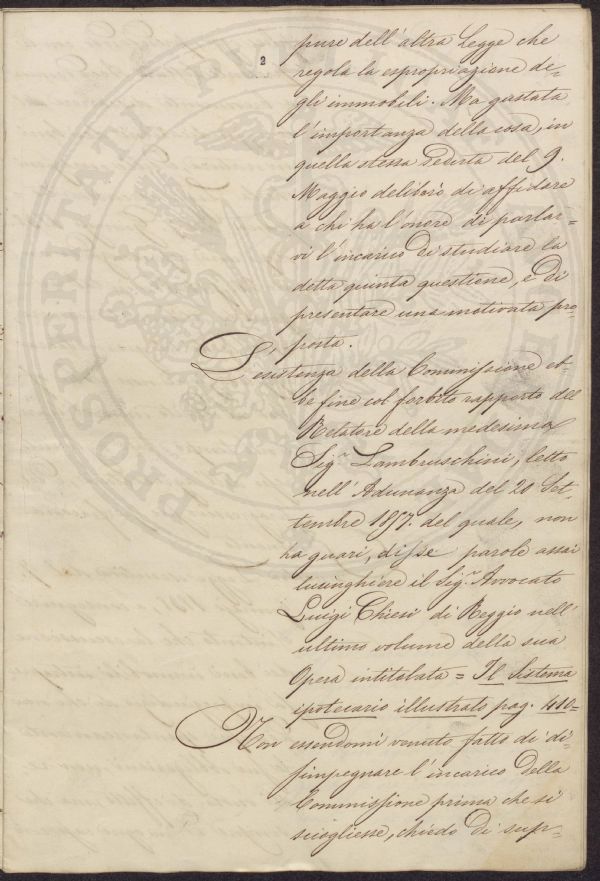 2
pure dell'altra Legge che
regola la espropriazione de-
gli immobili. Ma gustata
l'importanza della cosa, in
quella stessa seduta del 9.
Maggio deliberò di affidare
a chi ha l'onore di parlar-
vi l'incarico di studiare la
detta quinta questione, e di
presentare una motivata pro-
posta.
L'esistenza della Commissione eb-
be fine col forbito rapporto del
Relatore della medesima
Sig.r Lambruschini, letto
nell'Adunanza del 20 Set-
tembre 1857. del quale, non
ha guari, disse parole assai
lusinghiere il Sig.r Avvocato
Luigi Chiesi di Reggio nell'
ultimo volume della sua
Opera intitolata = Il Sistema
ipotecario illustrato pag. 410=
Non essendomi venuto fatto di di-
simpegnare l'incarico della
Commissione prima che si
sciogliesse, chiedo di sup-
PROSPERITATI PUBLICAE